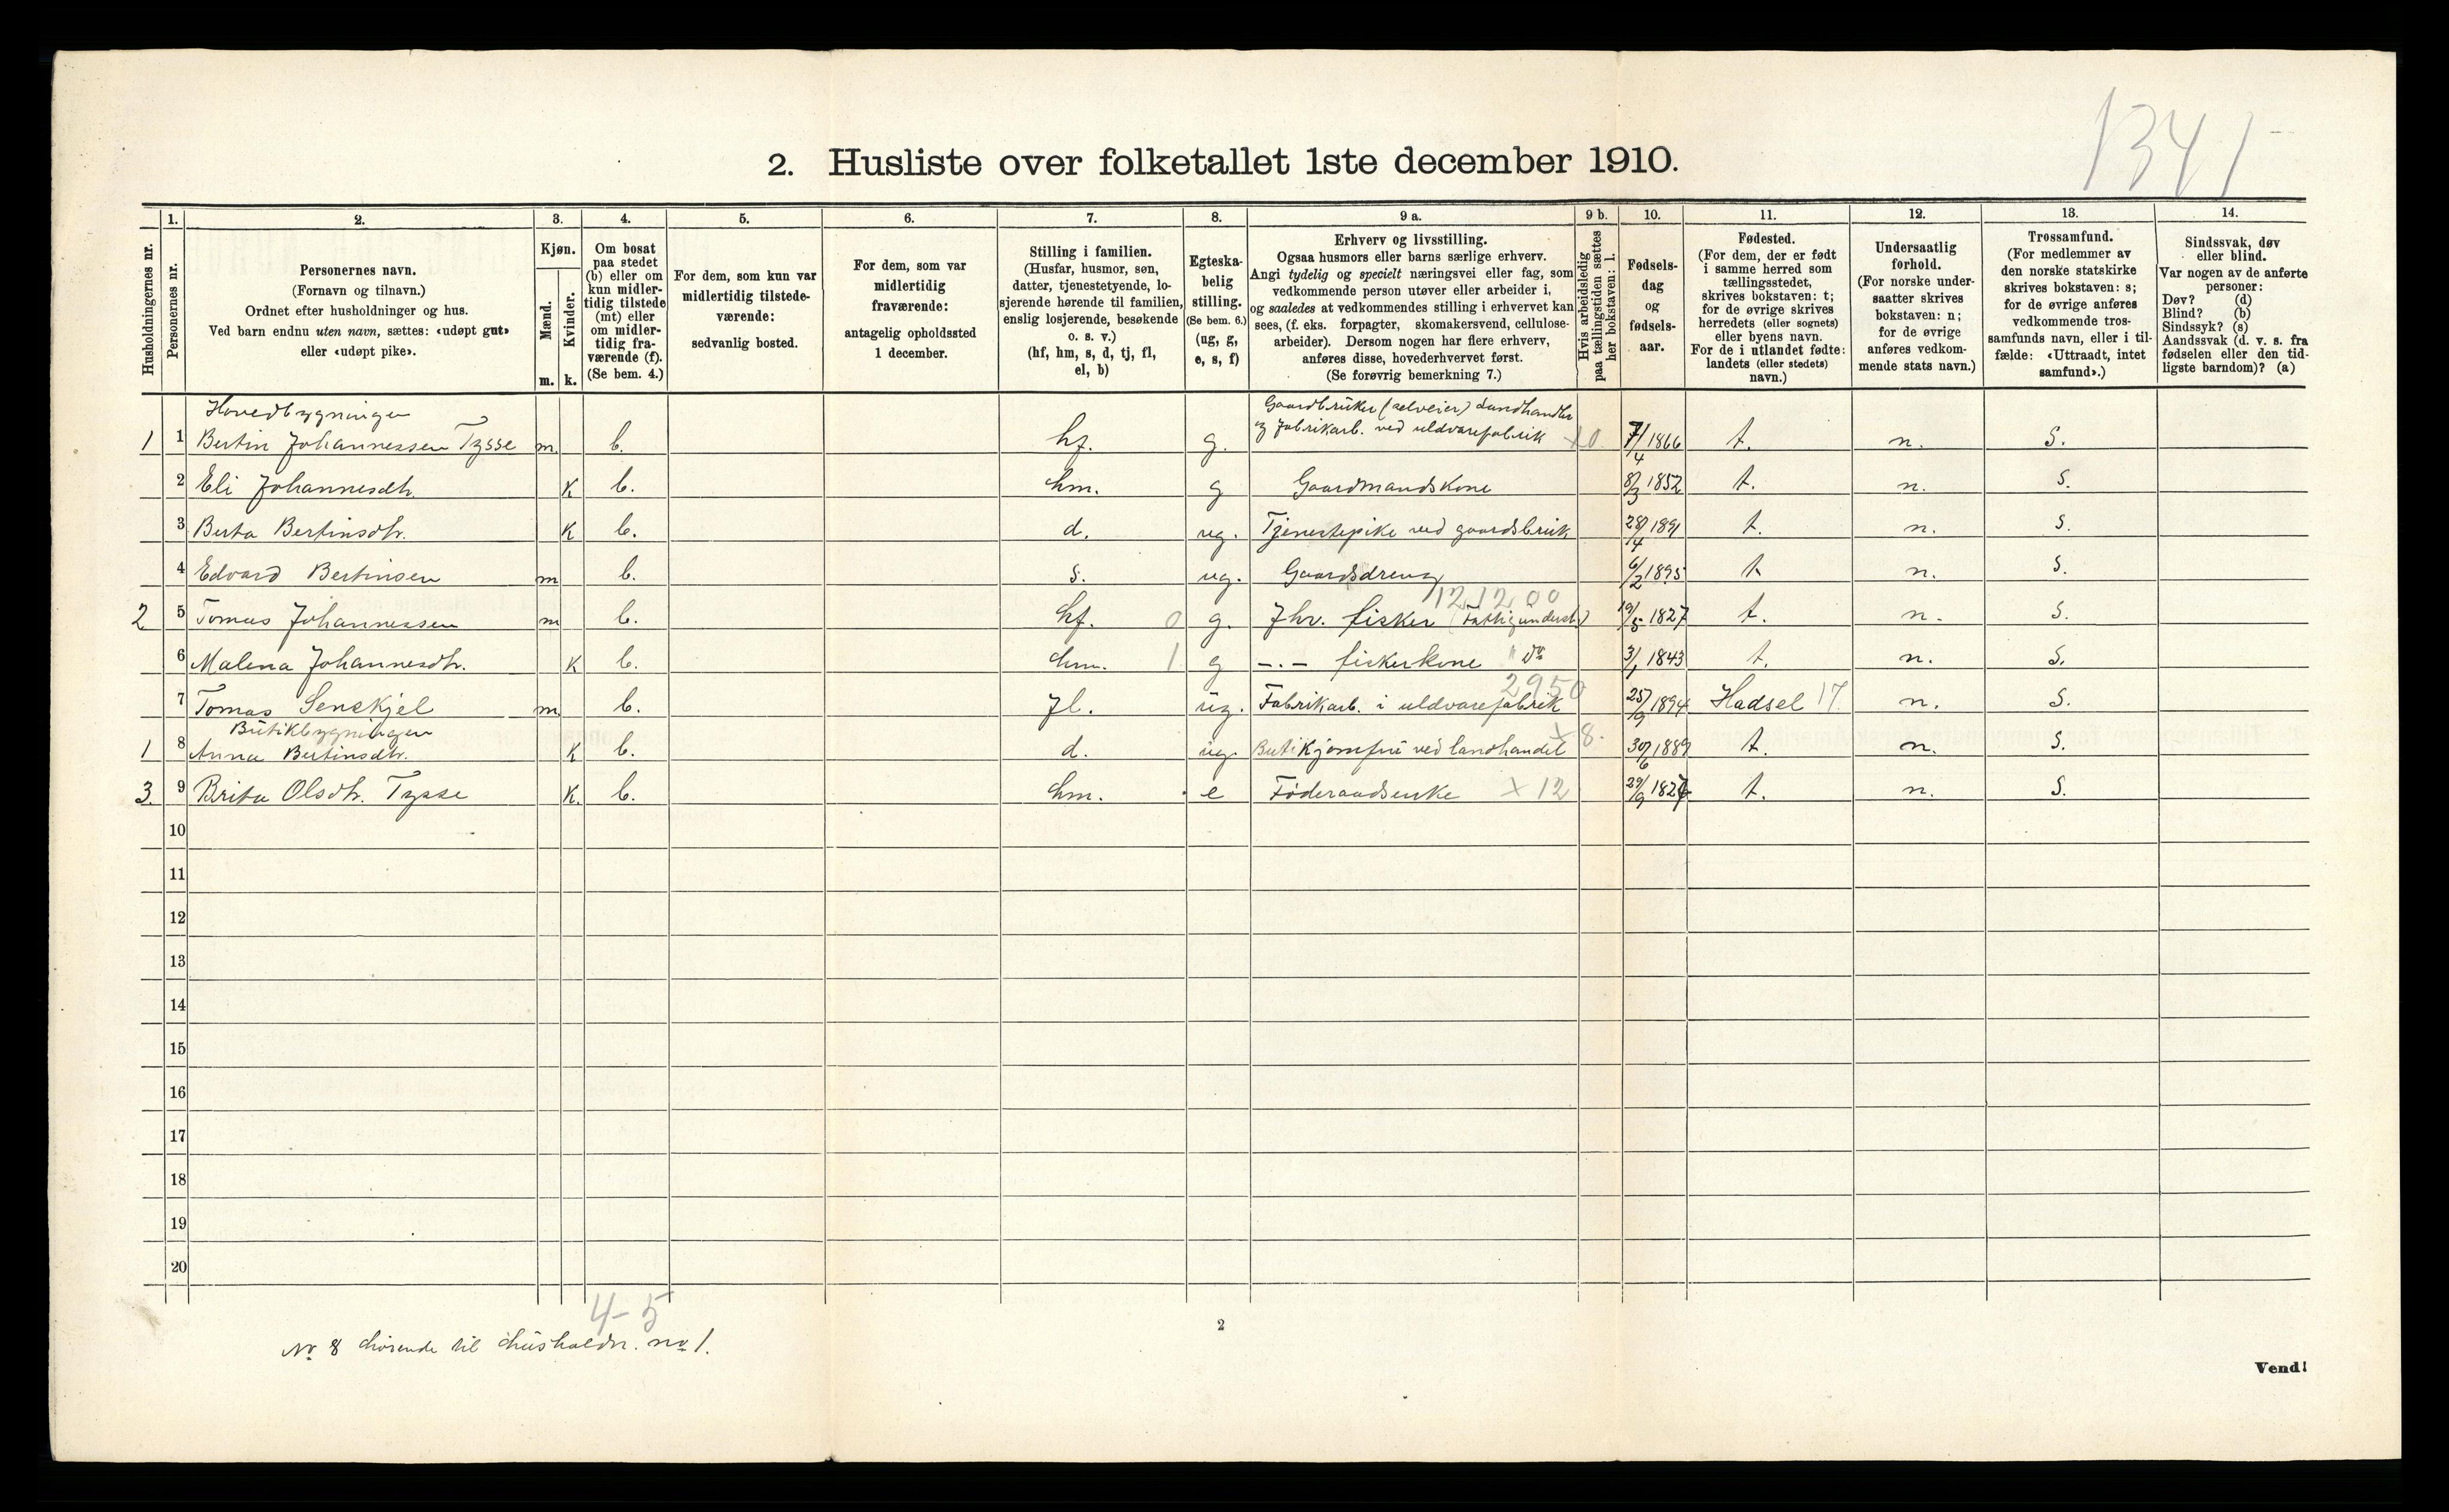 1341
2. Husliste over folketallet 1ste december 1910.
1. 2. 3. 4. 5. 6. 7. 8. 9 a. 9 b. 10. 11. 12. 13. 14.
Husholdningernes nr.
Personernes nr.
Personernes navn.
(Fornavn og tilnavn.)
Ordnet efter husholdninger og hus.
Ved barn endnu uten navn, sættes: «udøpt gut»
eller «udøpt pike».
Kjøn.
Mænd.
Kvinder.
m. k.
Om bosat
paa stedet
(b) eller om
kun midler-
tidig tilstede
(mt) eller
om midler-
tidig fra-
værende (f).
(Se bem. 4.)
For dem, som kun var
midlertidig tilstede-
værende:
sedvanlig bosted.
For dem, som var
midlertidig
fraværende:
antagelig opholdssted
1 december.
Stilling i familien.
(Husfar, husmor, søn,
datter, tjenestetyende, lo-
sjerende hørende til familien,
enslig losjerende, besøkende
o. s. v.)
(hf, hm, s, d, tj, fl,
el, b)
Egteska-
belig
stilling.
(Se bem. 6.)
(ug, g,
e, s, f)
Erhverv og livsstilling.
Ogsaa husmors eller barns særlige erhverv.
Angi tydelig og specielt næringsvei eller fag, som
vedkommende person utøver eller arbeider i,
og saaledes at vedkommendes stilling i erhvervet kan
sees, (f. eks. forpagter, skomakersvend, cellulose-
arbeider). Dersom nogen har flere erhverv,
anføres disse, hovederhvervet først.
(Se forøvrig bemerkning 7.)
Hvis arbeidsledig
paa tællingstiden sættes
her bokstaven: l.
Fødsels-
dag
og
fødsels-
aar.
Fødested.
(For dem, der er født
i samme herred som
tællingsstedet,
skrives bokstaven: t;
for de øvrige skrives
herredets (eller sognets)
eller byens navn.
For de i utlandet fødte:
landets (eller stedets)
navn.)
Undersaatlig
forhold.
(For norske under-
saatter skrives
bokstaven: n;
for de øvrige
anføres vedkom-
mende stats navn.)
Trossamfund.
(For medlemmer av
den norske statskirke
skrives bokstaven: s;
for de øvrige anføres
vedkommende tros-
samfunds navn, eller i til-
fælde: «Uttraadt, intet
samfund».)
Sindssvak, døv
eller blind.
Var nogen av de anførte
personer:
Døv? (d)
Blind? (b)
Sindssyk? (s)
Aandssvak (d. v. s. fra
fødselen eller den tid-
ligste barndom)? (a)
Hovedbygningen
Gaardbruker (selveier) Landhandler
og fabrikarb. ved uldvarefabrik
1 1 Bertin Johannessen Tysse m. b. hf. g. x 0 7/4 1866 t. n. s.
2 Eli Johannesdtr. k b. hm. g Gaardmandskone 8/3 1852 t. n. s.
3 Berta Bertinsdtr. k b. d. ug. Tjenestepike ved gaardsbruk 28/4 1891 t. n. s.
4 Edvard Bertinsen m b. s. ug. Gaardsdreng 6/2 1895 t n. s.
121200
2 5 Tomas Johannessen m b. hf. 0 g. Fhv. fisker (Fattigunderst.) 19/5 1827 t. n. s.
6 Malena Johannesdtr. k b. hm. 1 g –.– fiskerkone " do 3/1 1843 t. n. s.
2950
7 Tomas Senskjel m b. fl. ug. Fabrikarb. i uldvarefabrik 25/9 1894 Hadsel 17 n. s.
Butikbygningen
1 8 Anna Bertinsdtr. k b. d. ug. Butikjomfru ved landhandel x 8. 30/6 1889 t. n. s.
3. 9 Brita Olsdtr. Tysse k. b. hm. e Föderaadsenke x 12 29/9 1827 t. n. s.
10
11
12
13
14
15
16
17
18
19
20
4-5
No 8 hörende til husholdn. no 1.
2
Vend!